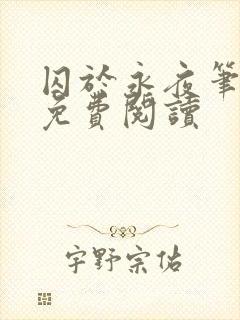 囚於永夜筆
免費閱讀
宇野宗佑